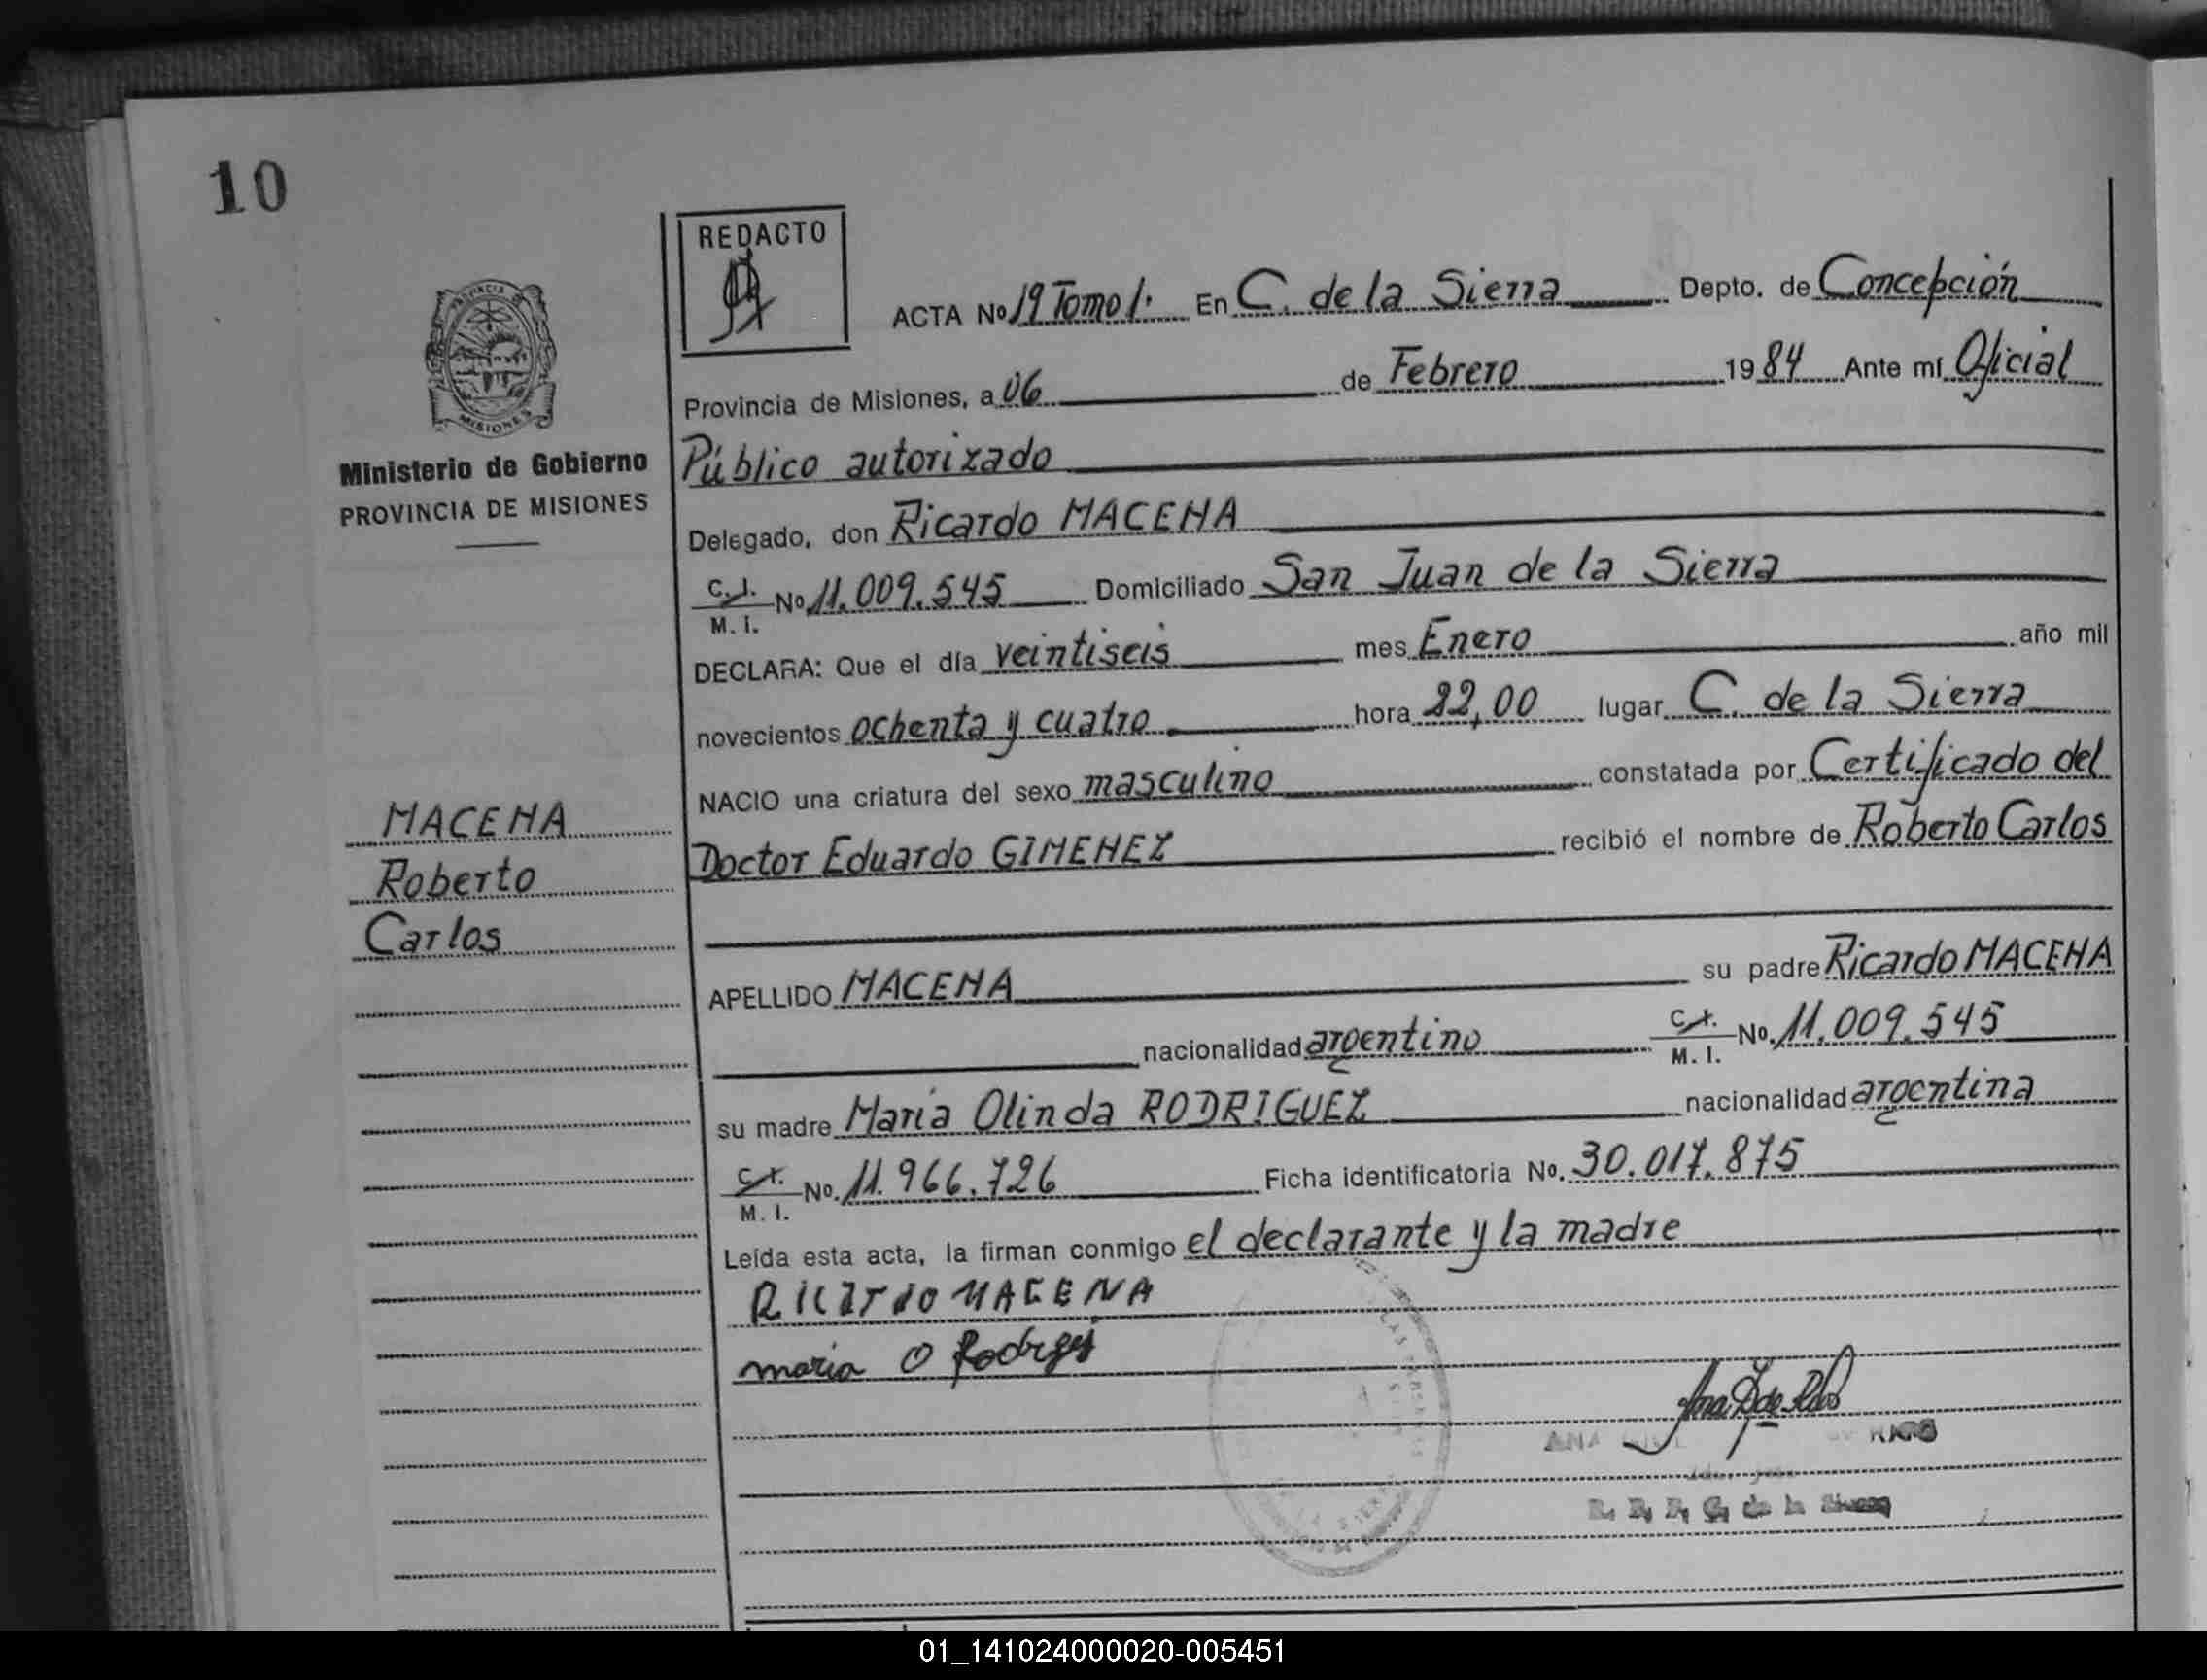 10
REDACTO
ACTA No 19 Tomo 1. En C. de la Sierra Depto. de Concepción
Provincia de Misiones, a 06 de Febrero 1984 Ante mí Oficial
Ministerio de Gobierno
PROVINCIA DE MISIONES
Público autorizado
Delegado, don Ricardo MACENA
C.I. M.I. No 11.009.545 Domiciliado San Juan de la Sierra
DECLARA: Que el día veintiseis mes Enero año mil
novecientos ochenta y cuatro hora 22,00 lugar C. de la Sierra
NACIO una criatura del sexo masculino constatada por Certificado del
Doctor Eduardo GIMENEZ recibió el nombre de Roberto Carlos
MACENA
Roberto
Carlos
APELLIDO MACENA su padre Ricardo MACENA
nacionalidad argentino C.I. M.I. No. 11.009.545
su madre María Olinda RODRIGUEZ nacionalidad argentina
C.I. M.I. No. 11.966.726 Ficha identificatoria No. 30.017.875
Leída esta acta, la firman conmigo el declarante y la madre
RICARDO MACENA
maria O
ANA
RIOS
C. de la Sierra
01_141024000020-005451